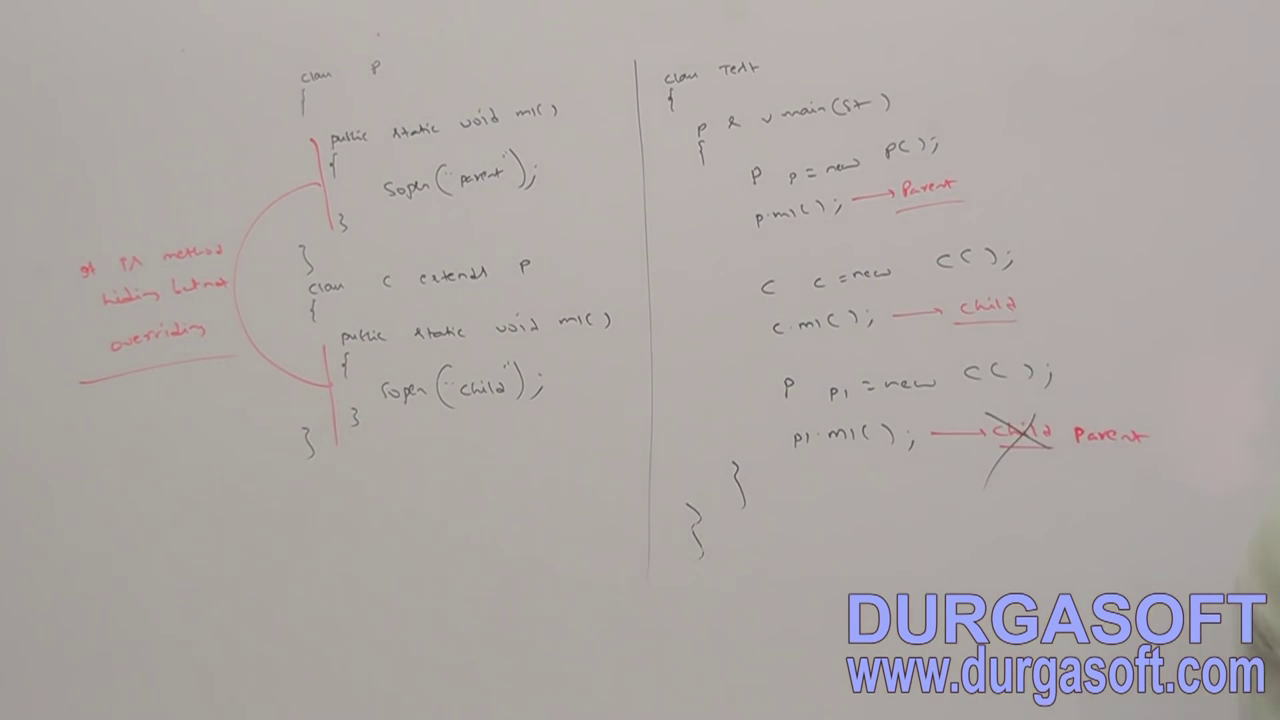 class P
{
public static void m1()
{
Sopln("parent");
}
}
class C extends P
{
public static void m1()
{
Sopln("child");
}
}
It is method
hiding but not
overriding
class Test
{
P S V main(St )
{
P p = new P();
p.m1(); → Parent
C c = new C();
c.m1(); → child
P p1 = new C();
p1.m1(); → child Parent
}
}
DURGASOFT
www.durgasoft.com